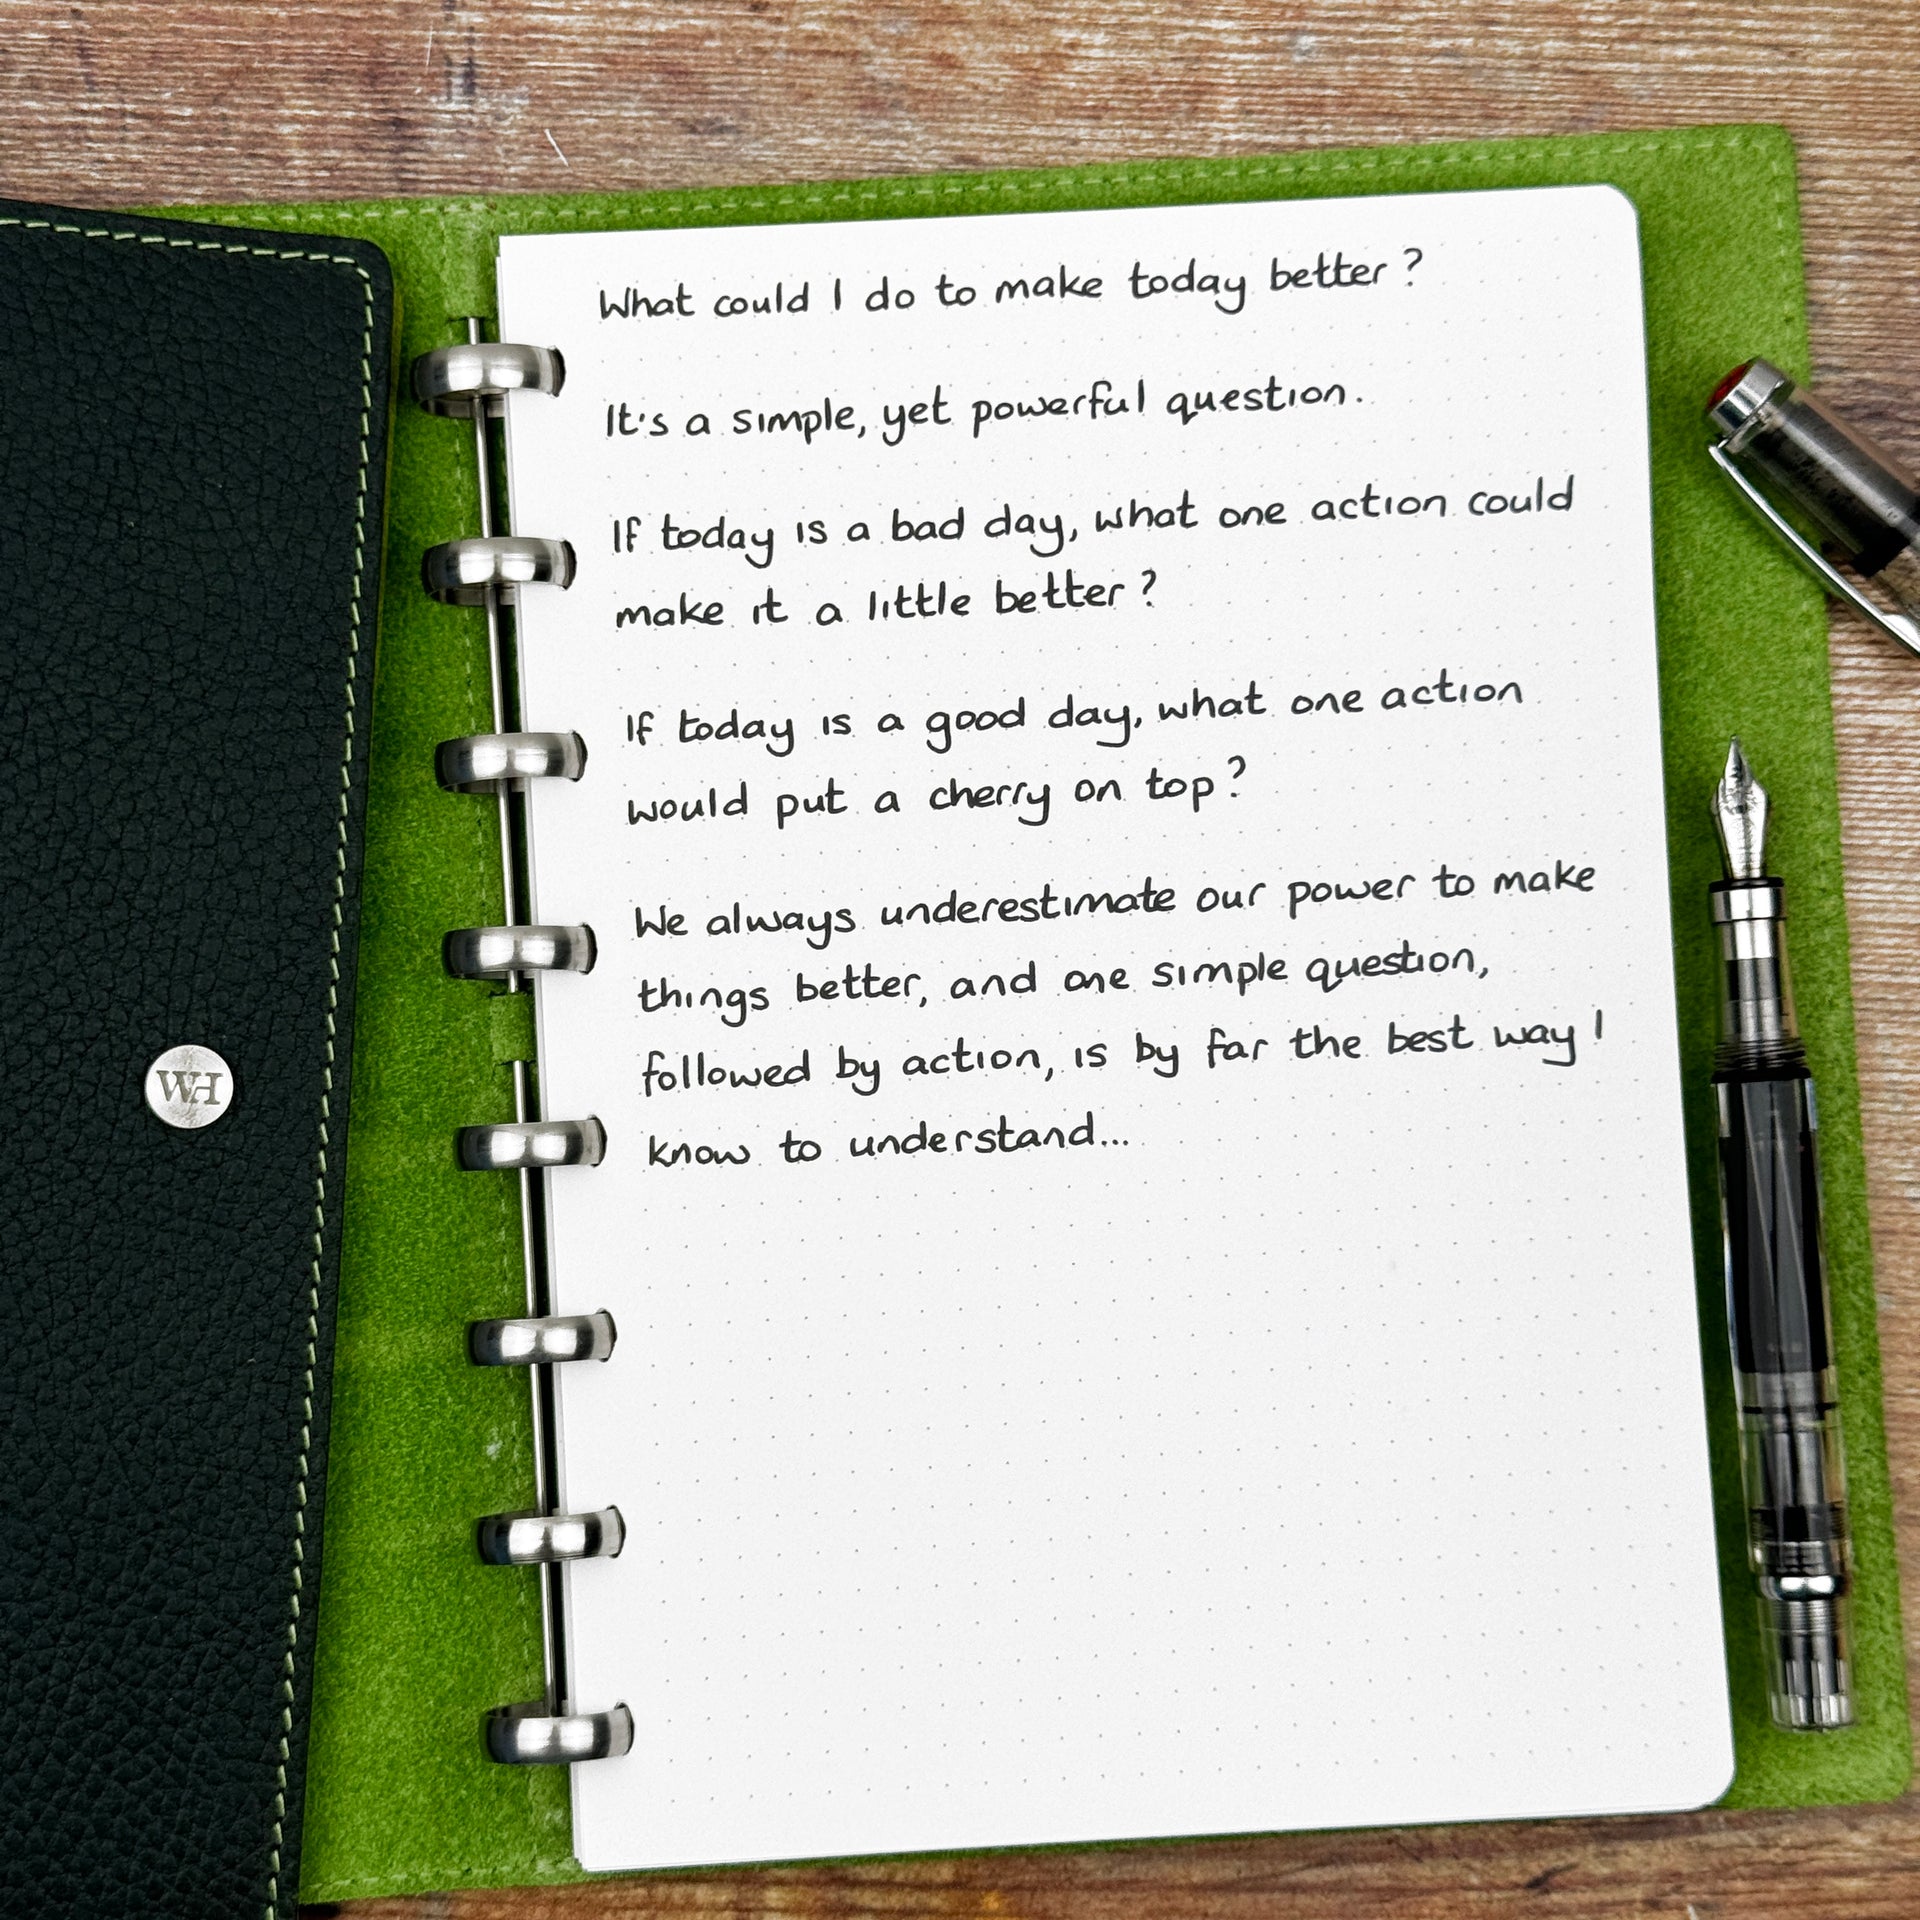 What could I do to make today better?
It's a simple, yet powerful question.
If today is a bad day, what one action could
make it a little better?
If today is a good day, what one action
would put a cherry on top?
We always underestimate our power to make
things better, and one simple question,
followed by action, is by far the best way I
know to understand...
WH